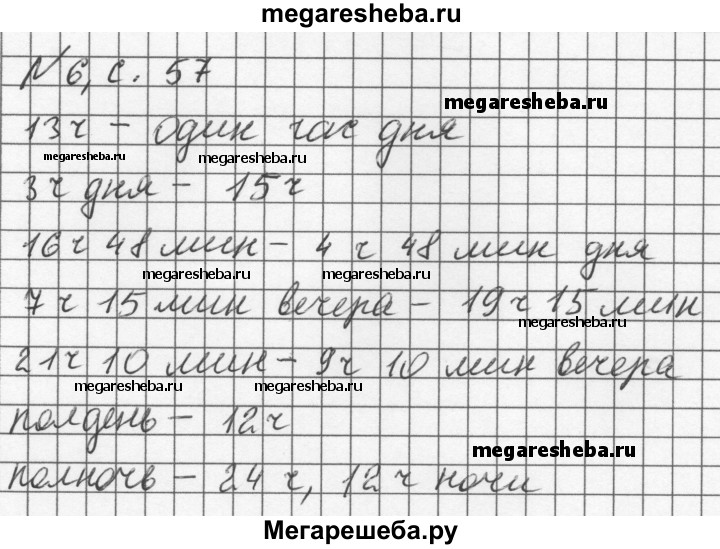 megaresheba.ru
№ 6, с. 57
megaresheba.ru
13 ч – один час дня
megaresheba.ru megaresheba.ru
3 ч дня – 15 ч
16 ч 48 мин – 4 ч 48 мин дня
megaresheba.ru megaresheba.ru
7 ч 15 мин вечера – 19 ч 15 мин
megaresheba.ru
21 ч 10 мин – 9 ч 10 мин вечера
megaresheba.ru megaresheba.ru
полдень – 12 ч
megaresheba.ru
полночь – 24 ч, 12 ч ночи
Мегарешеба.ру